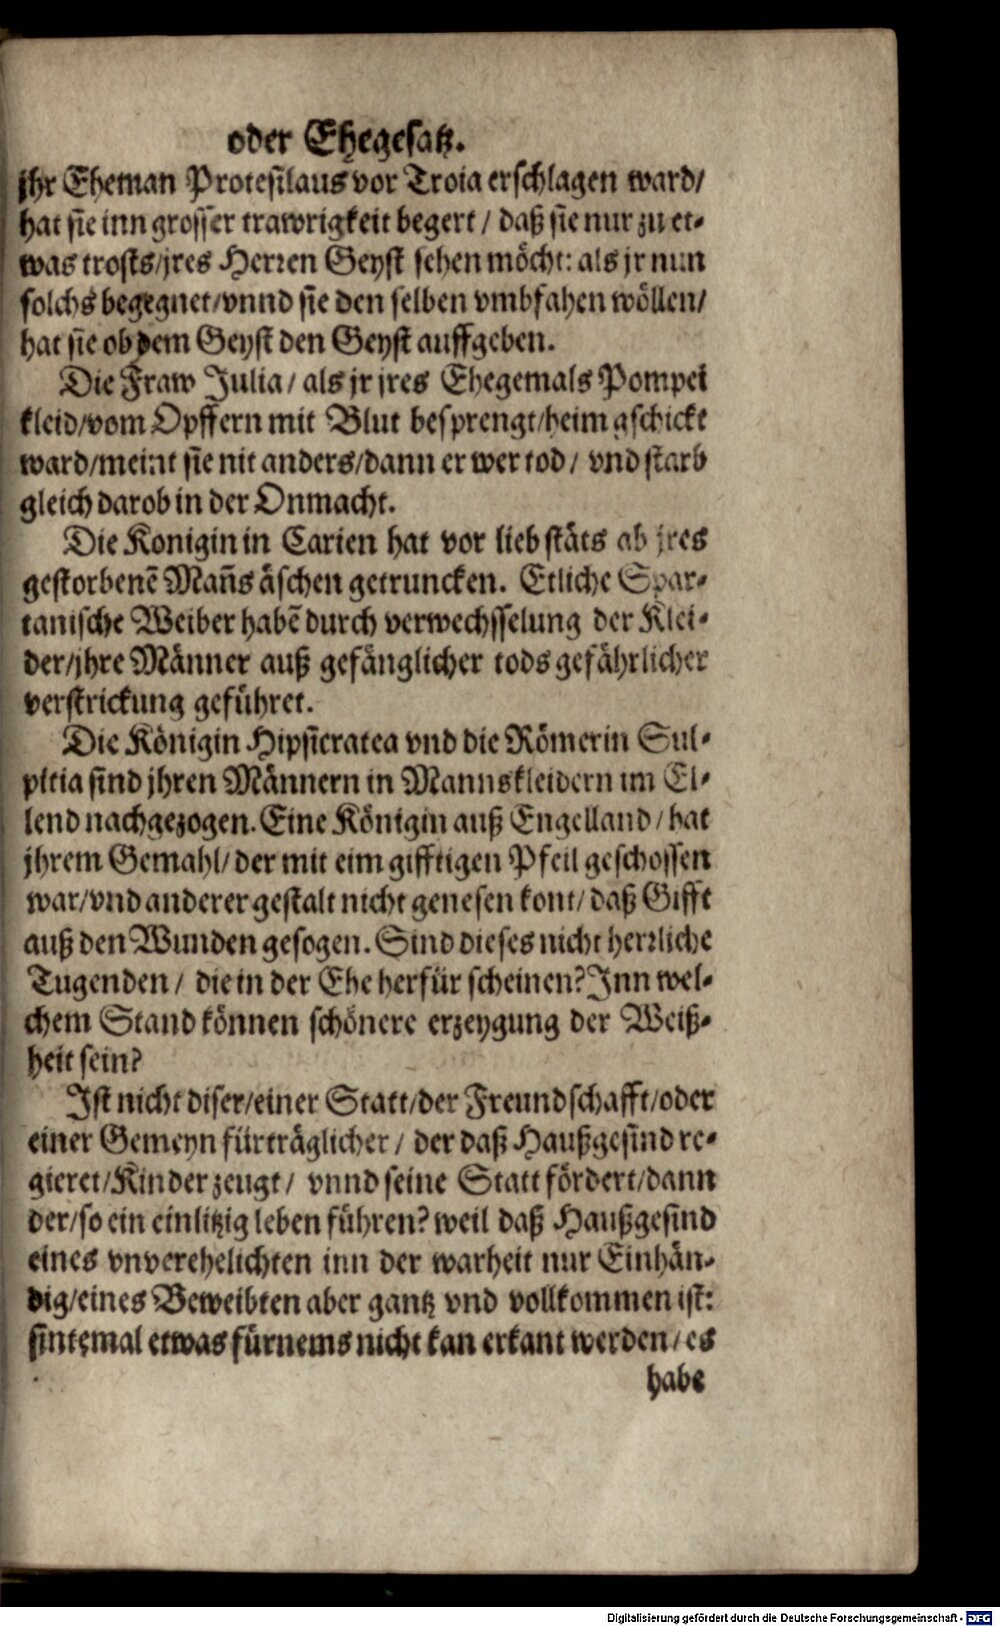 oder Ehegesatz.
jhr Eheman Protesilaus vor Troia erschlagen ward/
hat sie inn grosser trawrigkeit begert / daß sie nur zu et-
was trosts/jres Herren Geyst sehen möcht: als jr nun
solchs begegnet/vnnd sie den selben vmbfahen wöllen/
hat sie ob dem Geyst den Geyst auffgeben.
Die Fraw Julia / als jr jres Ehegemals Pompei
kleid/vom Opffern mit Blut besprengt/heim gschickt
ward/meint sie nit anders/dann er wer tod / vnd starb
gleich darob in der Onmacht.
Die Konigin in Carien hat vor lieb stäts ab jres
gestorbenẽ Mañs äschen getruncken. Etliche Spar-
tanische Weiber habẽ durch verwechsselung der Klei-
der/jhre Männer auß gefänglicher tods gefährlicher
verstrickung geführet.
Die Königin Hipsicratea vnd die Römerin Sul-
pitia sind jhren Männern in Mannskleidern im El-
lend nachgezogen. Eine Königin auß Engelland / hat
jhrem Gemahl/ der mit eim gifftigen Pfeil geschossen
war/vnd anderer gestalt nicht genesen kont/ daß Gifft
auß den Wunden gesogen. Sind dieses nicht herrliche
Tugenden / die in der Ehe herfür scheinen? Inn wel-
chem Stand können schönere erzeygung der Weiß-
heit sein?
Ist nicht diser/einer Statt/der Freundschafft/oder
einer Gemeyn fürträglicher / der daß Haußgesind re-
gieret/Kinder zeugt / vnnd seine Statt fördert/dann
der/so ein einlitzig leben führen? weil daß Haußgesind
eines vnverehelichten inn der warheit nur Einhän-
dig/eines Beweibten aber gantz vnd vollkommen ist:
sintemal etwas fürnems nicht kan erkant werden / es
habe
Digitalisierung gefördert durch die Deutsche Forschungsgemeinschaft - DFG